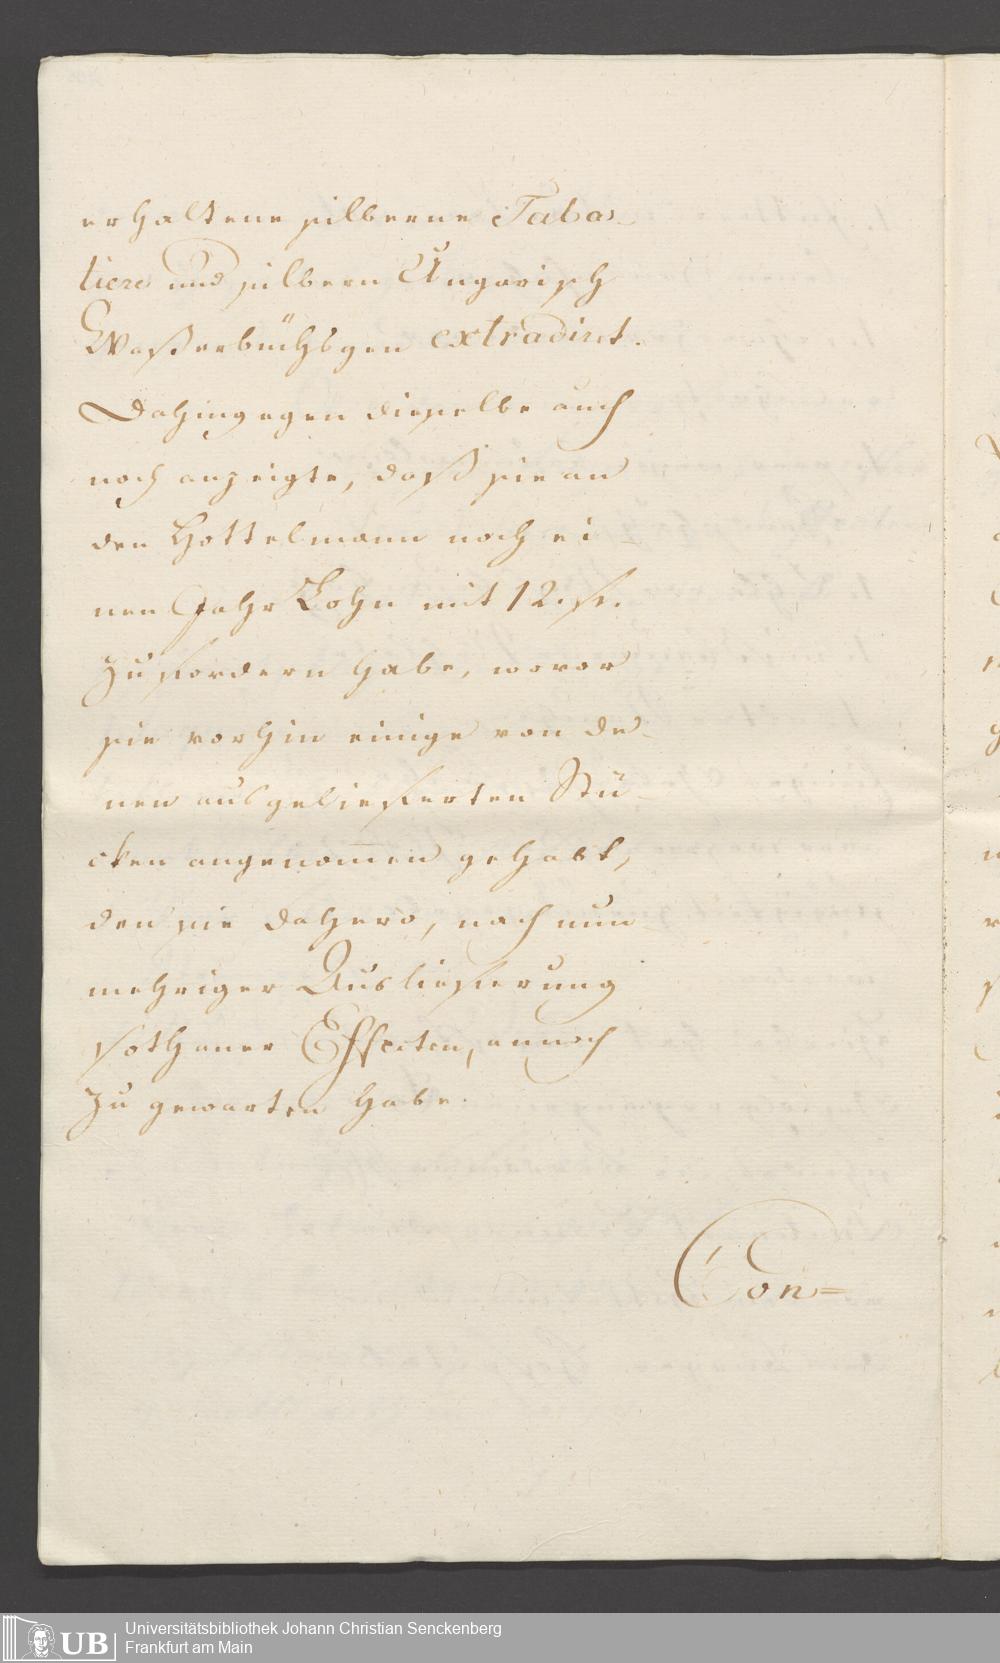 erhaltene silberne Taba-
tiere und silbern Ungarisch
Waßerbüchsgen extradirt.
Dahingegen dieselbe auch
noch anzeigte, daß sie an
den Hottelmann noch ei-
nen Jahr Lohn mit 12. fl.
zu fordern habe, wovor
sie vorhin einige von de-
nen ausgelieferten Stü-
cken angenom̅en gehabt,
den sie dahero, nach nun-
mehriger Auslieferung
sothaner Effecten, annoch
zu gewarten habe.
Con=
UB
Universitätsbibliothek Johann Christian Senckenberg
Frankfurt am Main